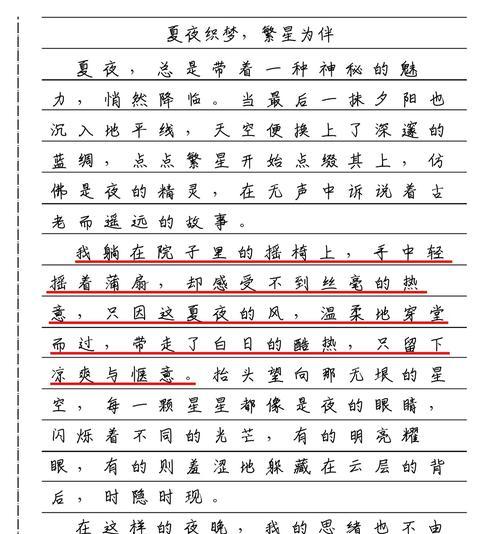 夏夜织梦，繁星为伴
夏夜，总是带着一种神秘的魅
力，悄然降临。当最后一抹夕阳也
沉入地平线，天空便换上了深邃的
蓝绸，点点繁星开始点缀其上，仿
佛是夜的精灵，在无声中诉说着古
老而遥远的故事。
我躺在院子里的摇椅上，手中轻
摇着蒲扇，却感受不到丝毫的热
意，只因这夏夜的风，温柔地穿堂
而过，带走了白日的酷热，只留下
凉爽与惬意。抬头望向那无垠的星
空，每一颗星星都像是夜的眼睛，
闪烁着不同的光芒，有的明亮耀
眼，有的则羞涩地躲藏在云层的背
后，时隐时现。
在这样的夜晚，我的思绪也不由